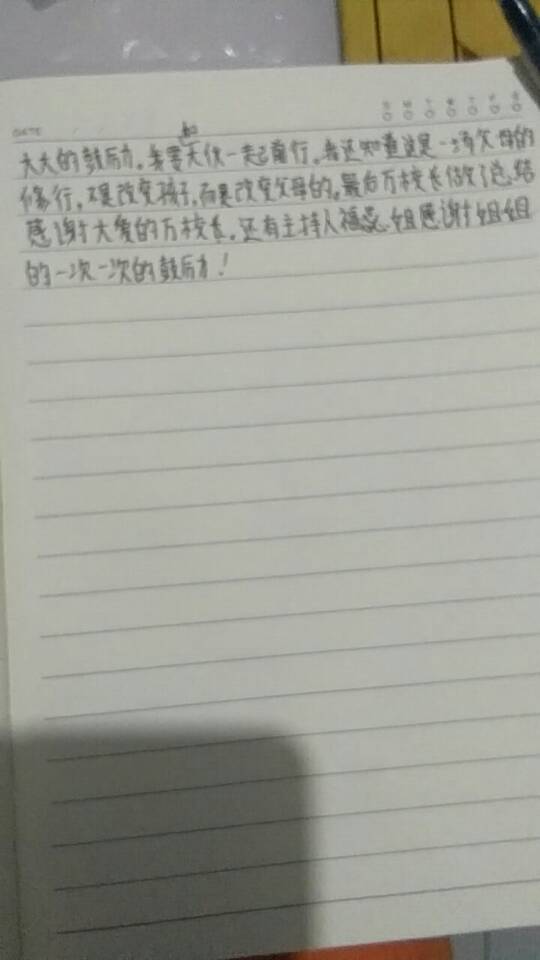 DATE
大大的鼓励，我要和天使一起前行，我还知道这是一场父母的
修行，不是改变孩子，而是改变父母的，最后万校长做了总结
感谢大爱的万校长，还有主持人福蕊姐感谢姐姐
的一次一次的鼓励！